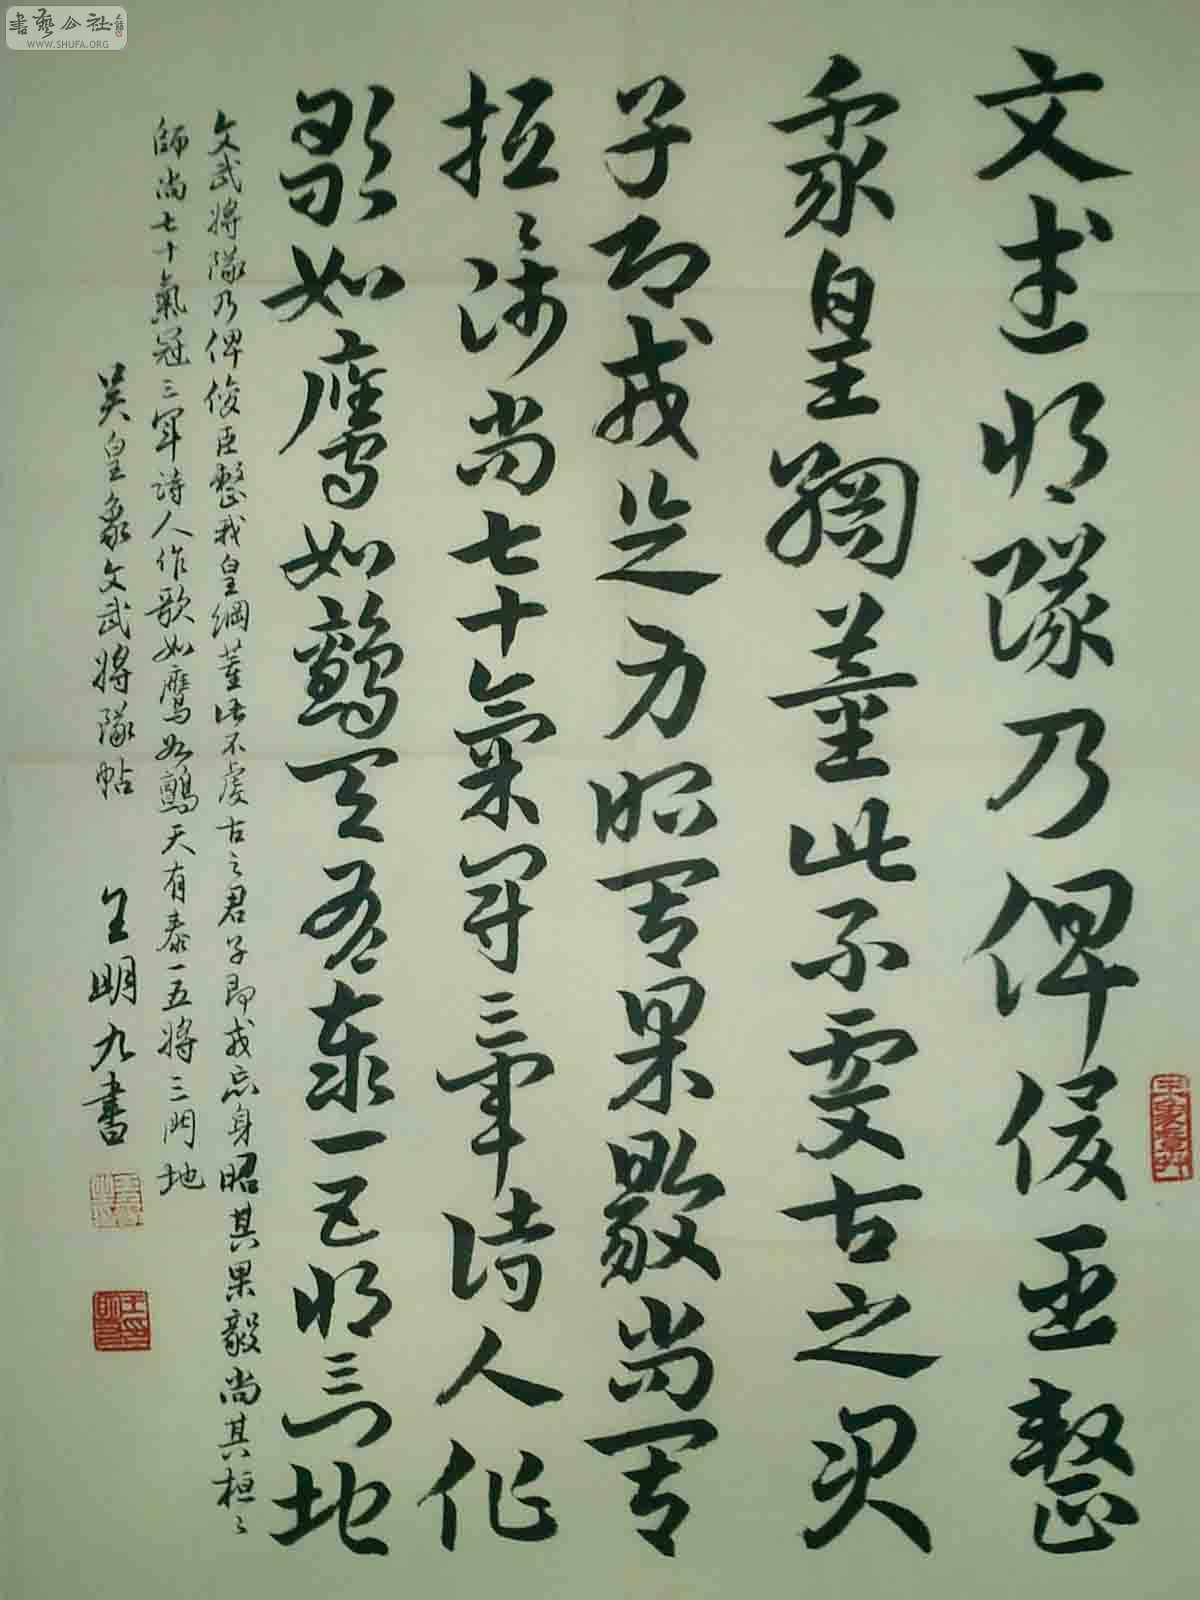 書藝公社
WWW.SHUFA.ORG
文武将隊乃俾俊臣整
我皇綱董此不虔古之君
子即戎忘身昭其果毅尚其
桓〻師尚七十氣冠三軍詩人作
歌如鷹如鸇天有泰一五将三門地
文武將隊乃俾俊臣整我皇綱董此不虔古之君子即戎忘身昭其果毅尚其桓〻
師尚七十氣冠三軍詩人作歌如鷹如鸇天有泰一五將三門地
吴皇象文武將隊帖 王明九書